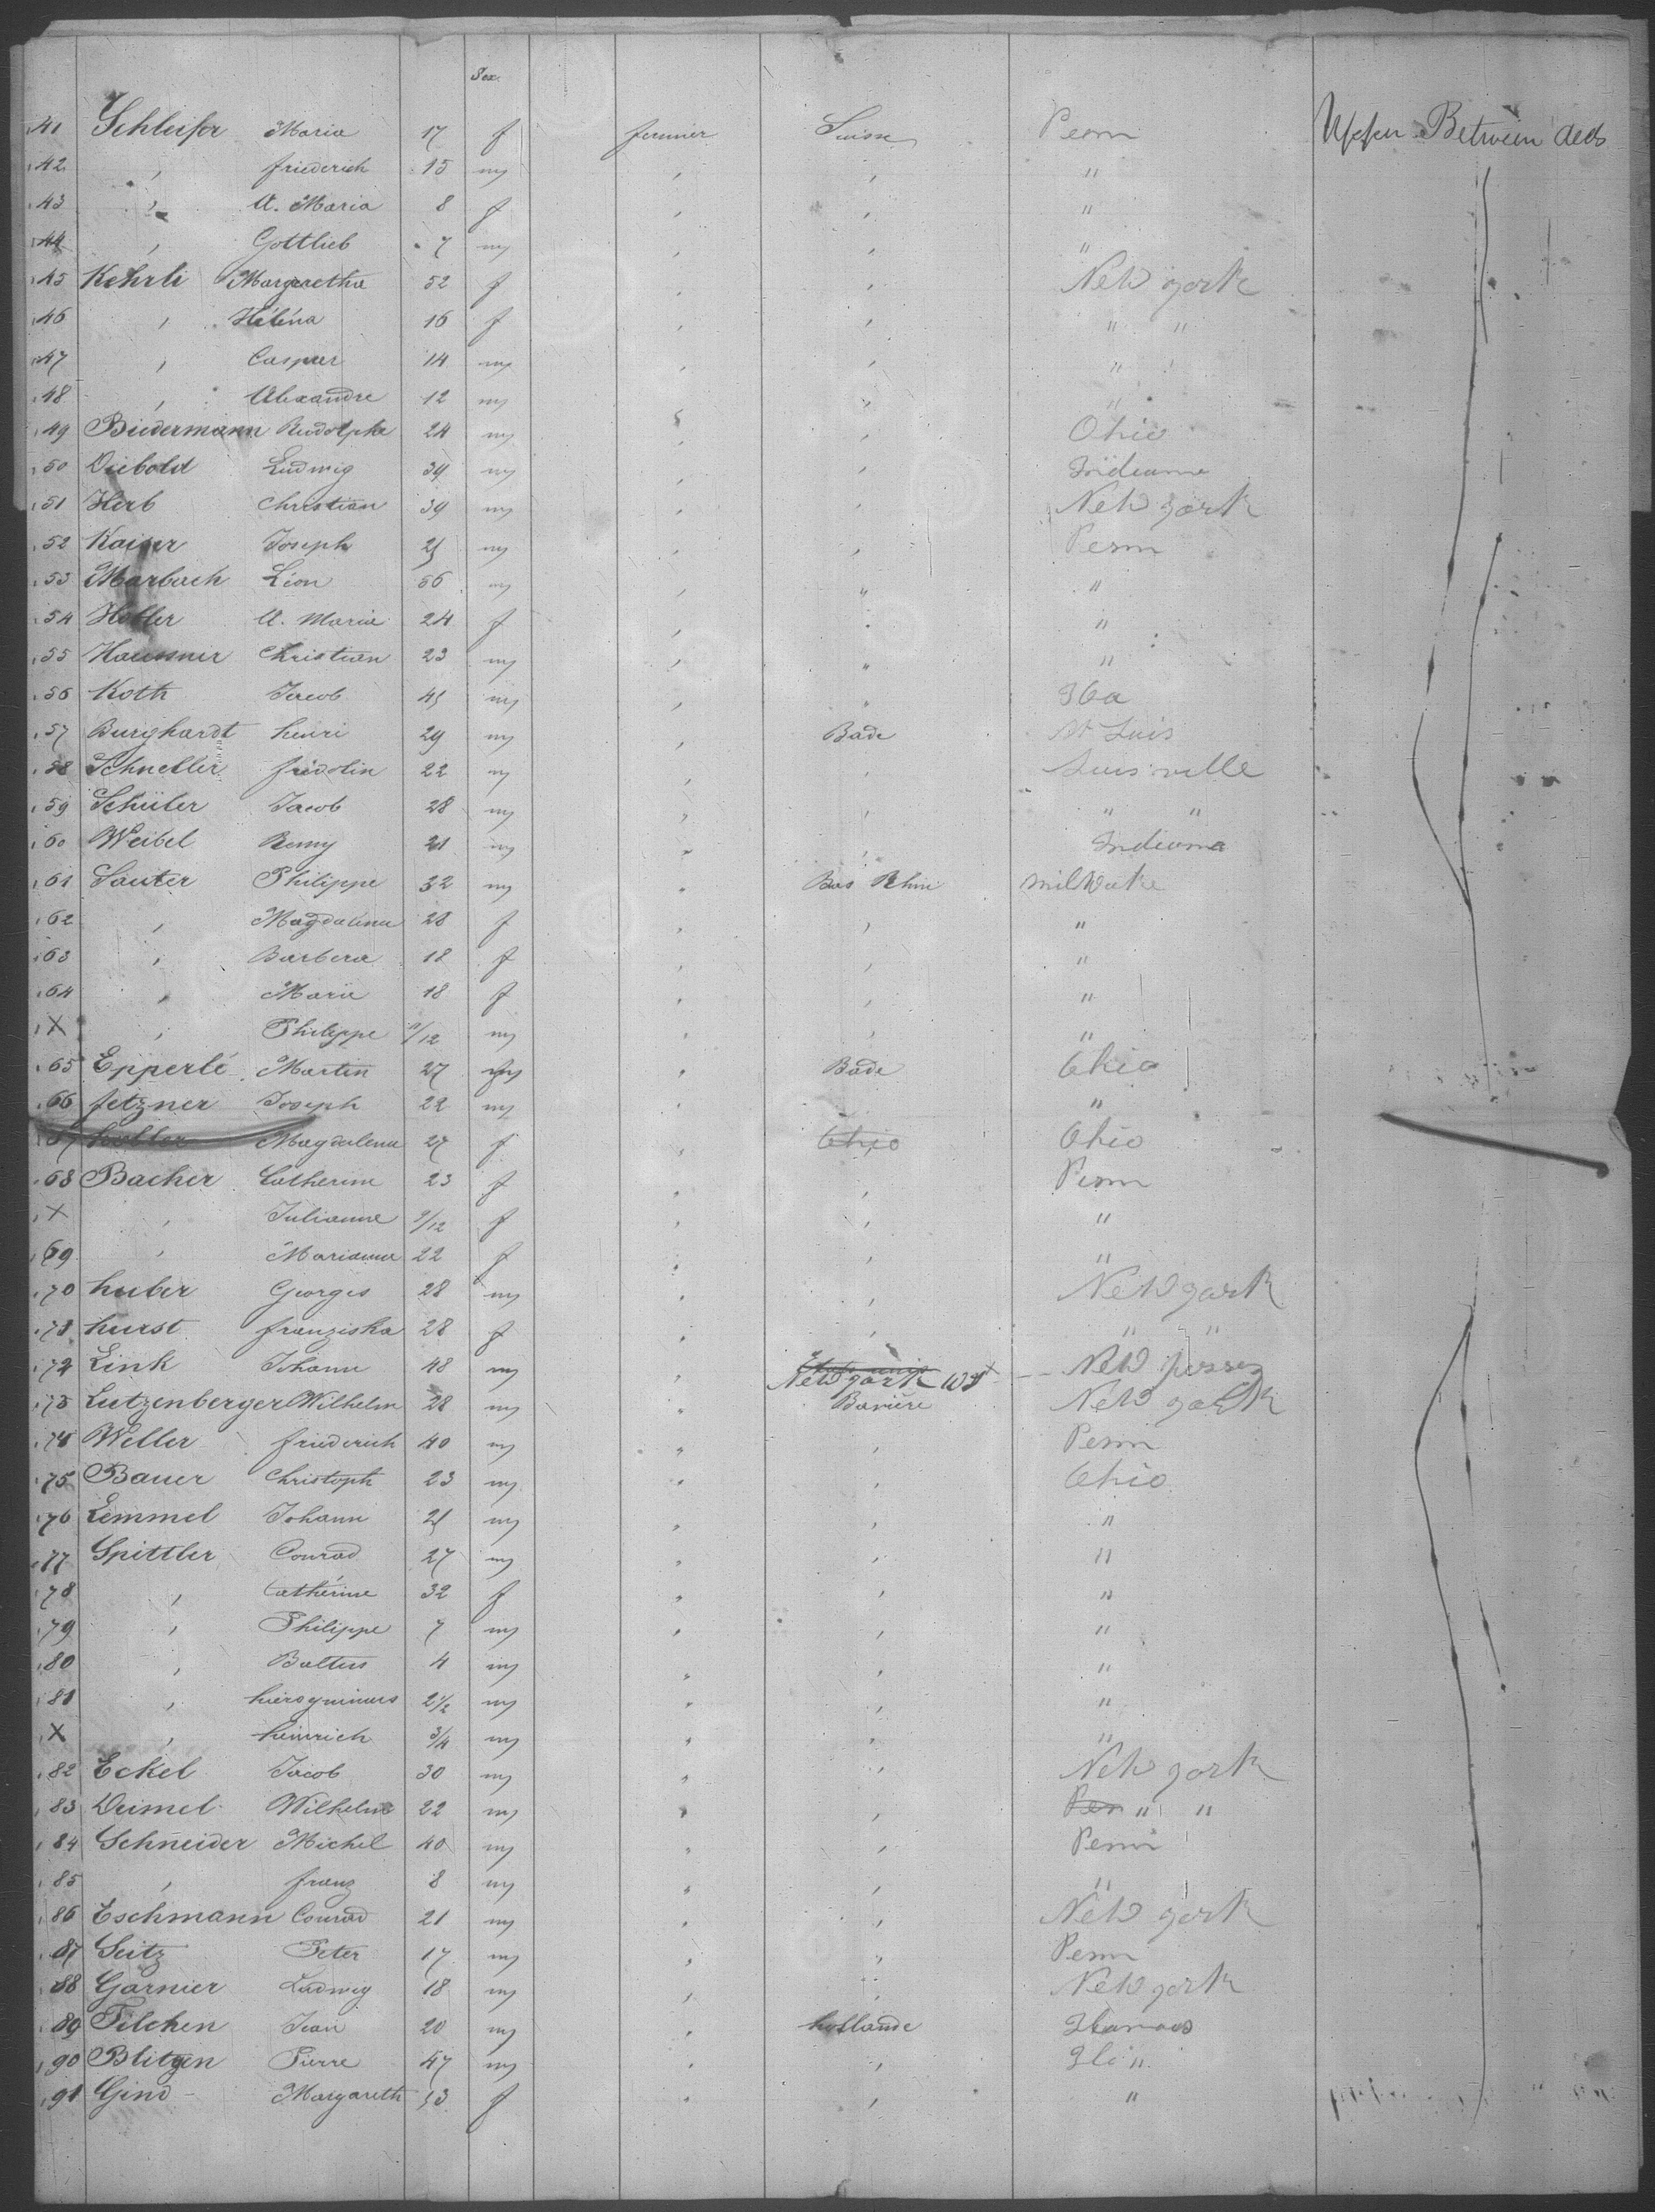 Sex.
41 Schleifer Maria 17 f fermier Suisse Penn Upper Between deck
42 , friederich 15 m , , "
43 , A. Maria 8 f , , "
44 , Gottlieb 7 m , , "
45 Kehrli Margaretha 52 f , , New york
46 , Héléna 16 f , , " "
47 , Casper 14 m , , "
48 , Alexandre 12 m , , "
49 Biedermann Rudolphe 24 m , , Ohio
50 Diebold Ludwig 34 m , , Indiana
51 Herb Christian 39 m , , New york
52 Kaiser Joseph m , , Penn
53 Marbach Léon 56 m , " "
54 A. Maria 24 f , "
55 Christian 23 m , " "
56 Koth Jacob m , "
57 Burghardt henri 29 m , Bade St Luis
58 Schneller fridolin 22 m , , Luisville
59 Schüler Jacob 28 m , , " "
60 Weibel Remy 21 m , , Indiana
61 Sauter Philippe 32 m , Bas Rhin milwake
62 , Magdalena 28 f , , "
63 , Barbera 18 f , , "
64 , Marie 18 f , , "
X , Philippe /12 m , , "
65 Epperlé Martin 27 m , Bade Ohio
66 fetzner Joseph 22 m , "
67 Magdalena 27 f , Ohio Ohio
68 Bacher Catherine 23 f , , Penn
X , Julianne 9/12 f , , "
69 , Marianna 22 f , , "
70 huber Georges 28 m , , New york
71 hurst franziska 28 f , , " "
72 Link Johann 48 m , New york New
73 Lutzenberger Wilhelm 28 m " Bavière New york
74 Weller friederich 40 m , , Penn
75 Bauer Christoph 23 m , , Ohio
76 Lemmel Johann 21 m , , "
77 Spittler Conrad 27 m , , "
78 , Cathérine 32 f , , "
79 , Philippe 7 m , , "
80 , Baltus 4 m , , "
81 , hierognimus 2 1/2 m , , "
X , heinrich 3/4 m , , "
82 Eckel Jacob 30 m , , New york
83 Deimel Wilhelm 22 m , , Pen " "
84 Schneider Michel 40 m , , Penn
85 , franz 8 m , , "
86 Eschmann Conrad 21 m , , New york
87 Seitz Peter 17 m , , Penn
88 Garnier Ludwig 18 m , , New york
89 Filchen Jean 20 m , hollande
90 Blitgen Pierre 47 m , , "
91 Margareth f , , "